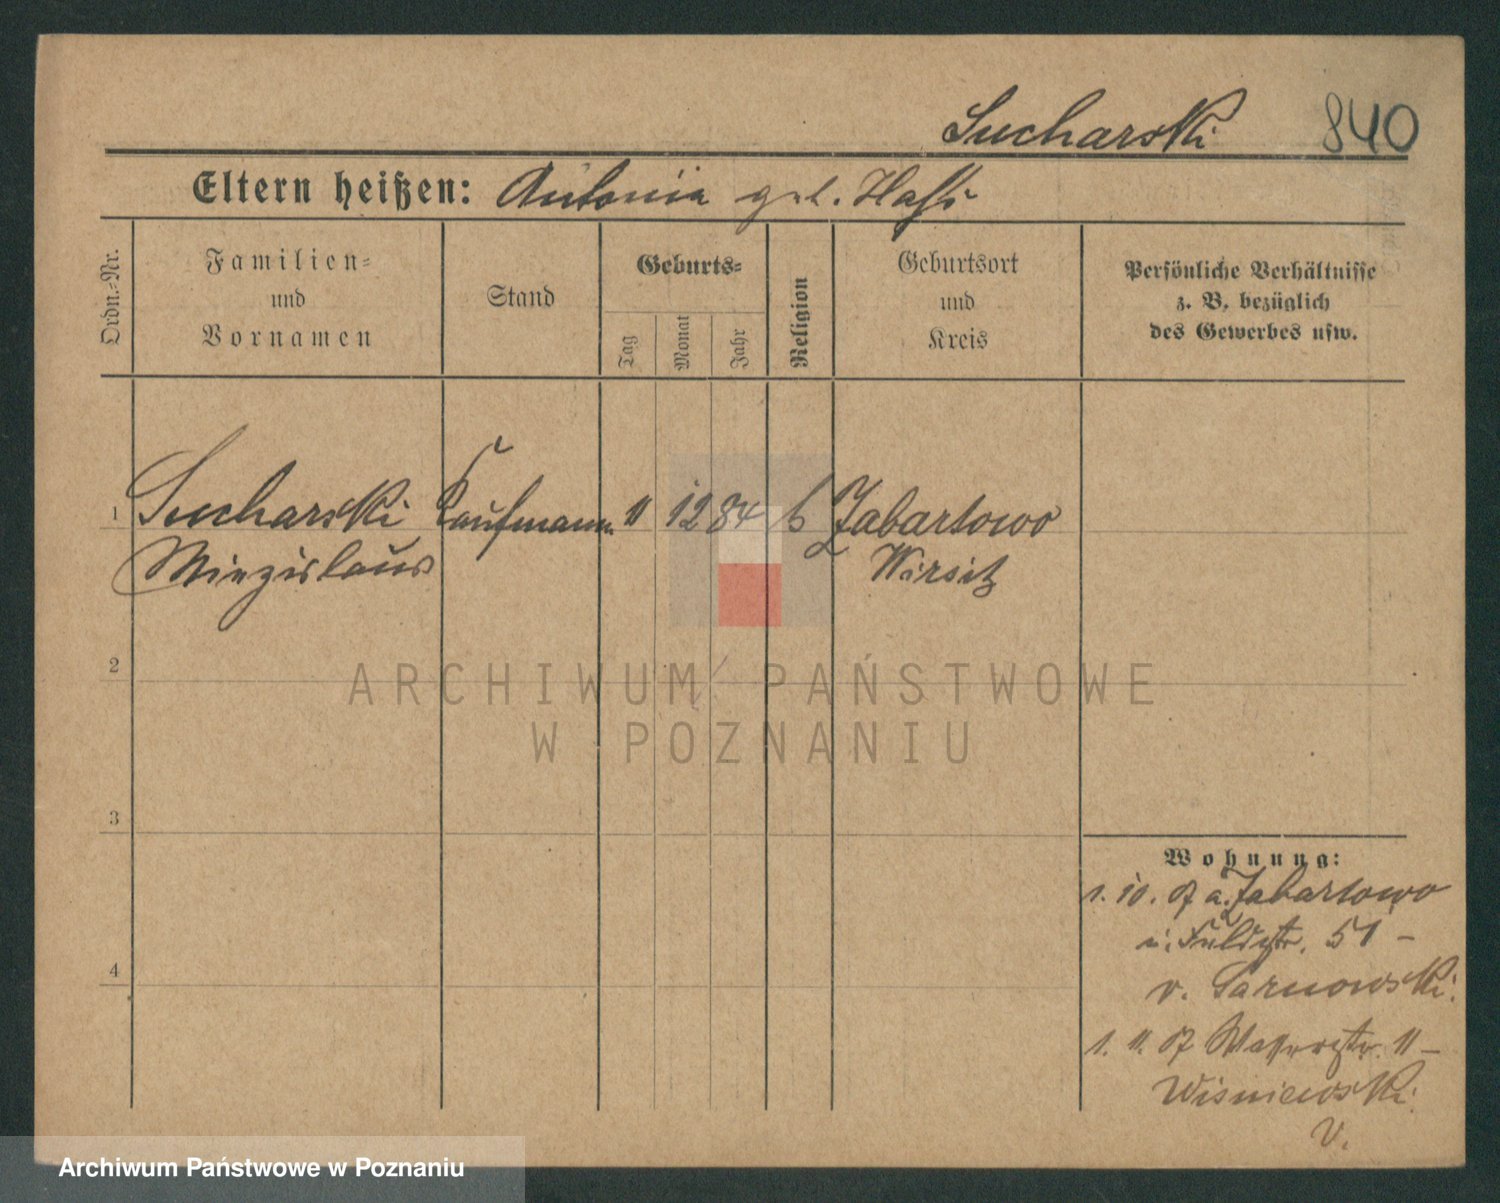 Sucharski 840
Eltern heißen: Antonia geb. Hass
Ordn.-Nr.
Familien-
und
Vornamen
Stand
Geburts-
Tag
Monat
Jahr
Religion
Geburtsort
und
Kreis
Persönliche Verhältnisse
z. B. bezüglich
des Gewerbes usw.
1 Sucharski Kaufmann 11 12 84 Zabartowo
Miezislaus Wirsitz
2
3
4
Wohnung:
1. 10. 07 a. Zabartowo
51 -
v. Sarnowski.
1. 11. 07 Wasserstr. 11 -
Wisniewski.
V.
ARCHIWUM PAŃSTWOWE
W POZNANIU
Archiwum Państwowe w Poznaniu